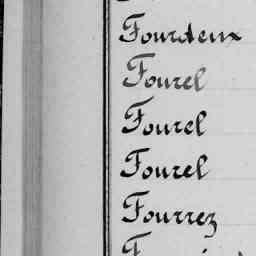 Fourdeux
Fourel
Fourel
Fourel
Fourrez